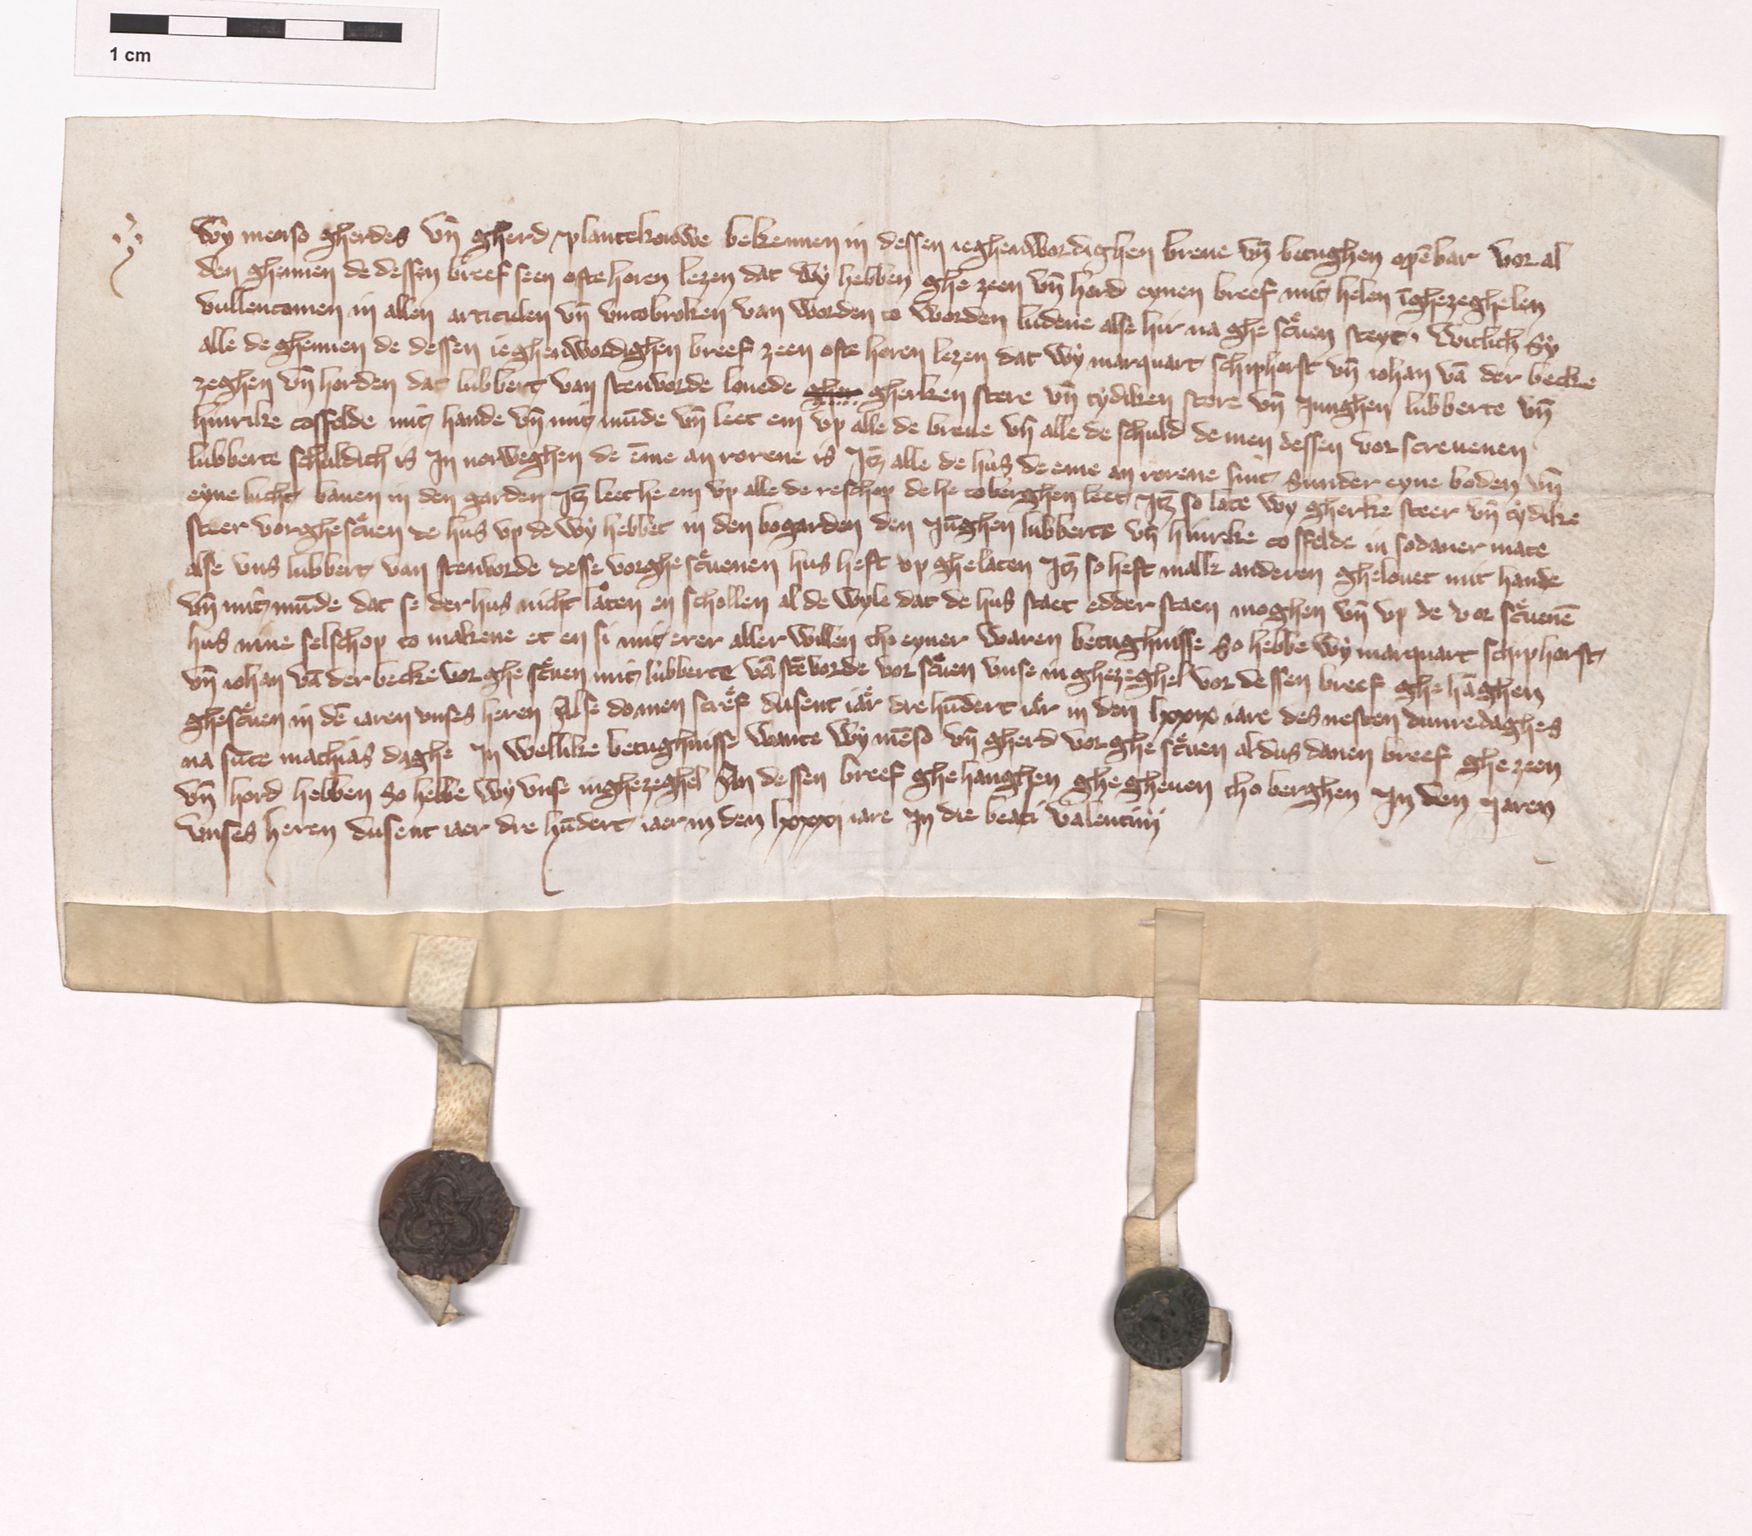 1 cm
Wy menso gherdes vn̄ gherd plantekouwe bekennen in dessen ieghenwordighen breue vn̄ betughen opēbar vor al
den ghennen de dessen breef seen ofte horen lezen dat wy hebben ghe zeen vn̄ hord eynen breef mit helen īghezeghelen
vullencomen in allen articulen vn̄ vntobroken van worden to worden ludene alse hir na ghe scͤuen steyt. Witlich sy
alle de ghennen de dessen ieghenwordighen breef zeen ofte horen lezen dat wy marquart schiphorst vn̄ iohan vā der becke
zeghen vn̄ horden dat lubbert van stenvorde louede gher gherken stere vn̄ tydiken stere vn̄ Junghen lubberte vn̄
hinrike cosfelde mit hande vn̄ mit mūde vn̄ leet em vp alle de breue vn̄ alle de schuld de men dessen vor screuenen
lubberte schuldich is In norweghen de ēme an rorene is Jtē alle de hus de eme an rorene sint sunder eyne boden vn̄
eyne lucht bauen in den garden Jtē leet he em vp alle de reschop de he to berghen leet Jtē so late wy gherke steer vn̄ tydike
steer vorghescͤuen de hus vp de wy hebbet in den bogarden den Jūghen lubberte vn̄ hinrike co sfelde in sodaner mate
alse vns lubbert van stenvorde desse vorghe scͤuenen hus heft vp ghelaten Jtē so heft malk anderen ghelouet mit hande
vn̄ mit mūde dat se der hus nicht laten en schollen al de wyle dat de hus staet edder staen moghen vn̄ vp de vor scͤuenē
hus nine selschop to makene et en si mit erer aller willen tho eyner waren betughnisse So hebbe wy marquart schiphorst
vn̄ iohan vā der becke vor ghe scͤuen mit lubberte vā stēvorde vor scͤuen vnse in ghezeghel vor dessen breef ghe hāghen
ghescͤuen in dē iaren vnses heren Alse do men screͤf dusent iaͤr dre hūdert iaͤr in den lxxix iare des nesten dunredaghes
na sūte mathias daghe In welkke betughnisse wante wy mēso vn̄ gherd vor ghe scͤuen al dus danen breef ghe zeen
vn̄ hord hebben so hebbe wy vnse inghezeghel An dessen breef ghe hanghen ghe gheuen tho berghen In den Jaren
vnses heren dusent iaer dre hūdert iaer in den lxxxi iare In die beati valentini